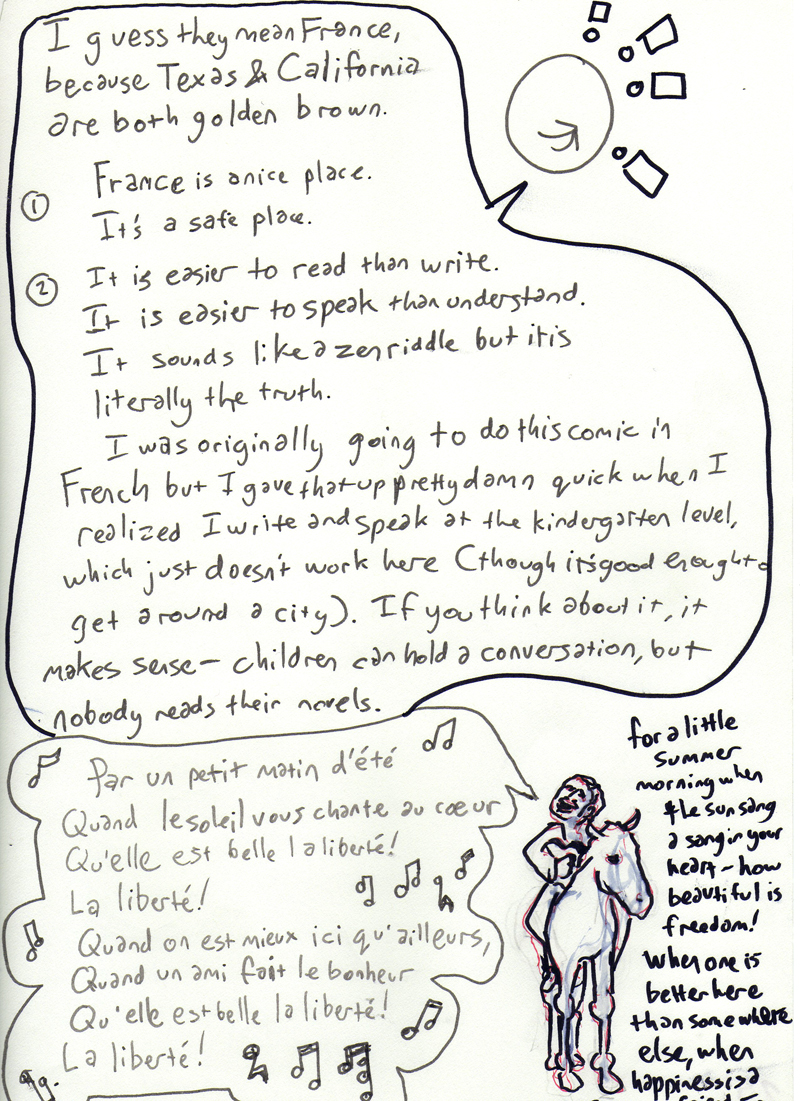 I guess they mean France,
because Texas & California
are both golden brown.
① France is a nice place.
It's a safe place.
② It is easier to read than write.
It is easier to speak than understand.
It sounds like a zen riddle but it is
literally the truth.
I was originally going to do this comic in
French but I gave that up pretty damn quick when I
realized I write and speak at the kindergarten level,
which just doesn't work here (though it's good enough to
get around a city). If you think about it, it
makes sense – children can hold a conversation, but
nobody reads their novels.
Par un petit matin d'été
Quand le soleil vous chante au cœur
Qu'elle est belle la liberté!
La liberté!
Quand on est mieux ici qu'ailleurs,
Quand un ami fait le bonheur
Qu'elle est belle la liberté!
La liberté!
for a little
summer
morning when
the sun sang
a song in your
heart – how
beautiful is
freedom!
When one is
better here
than somewhere
else, when
happiness is a